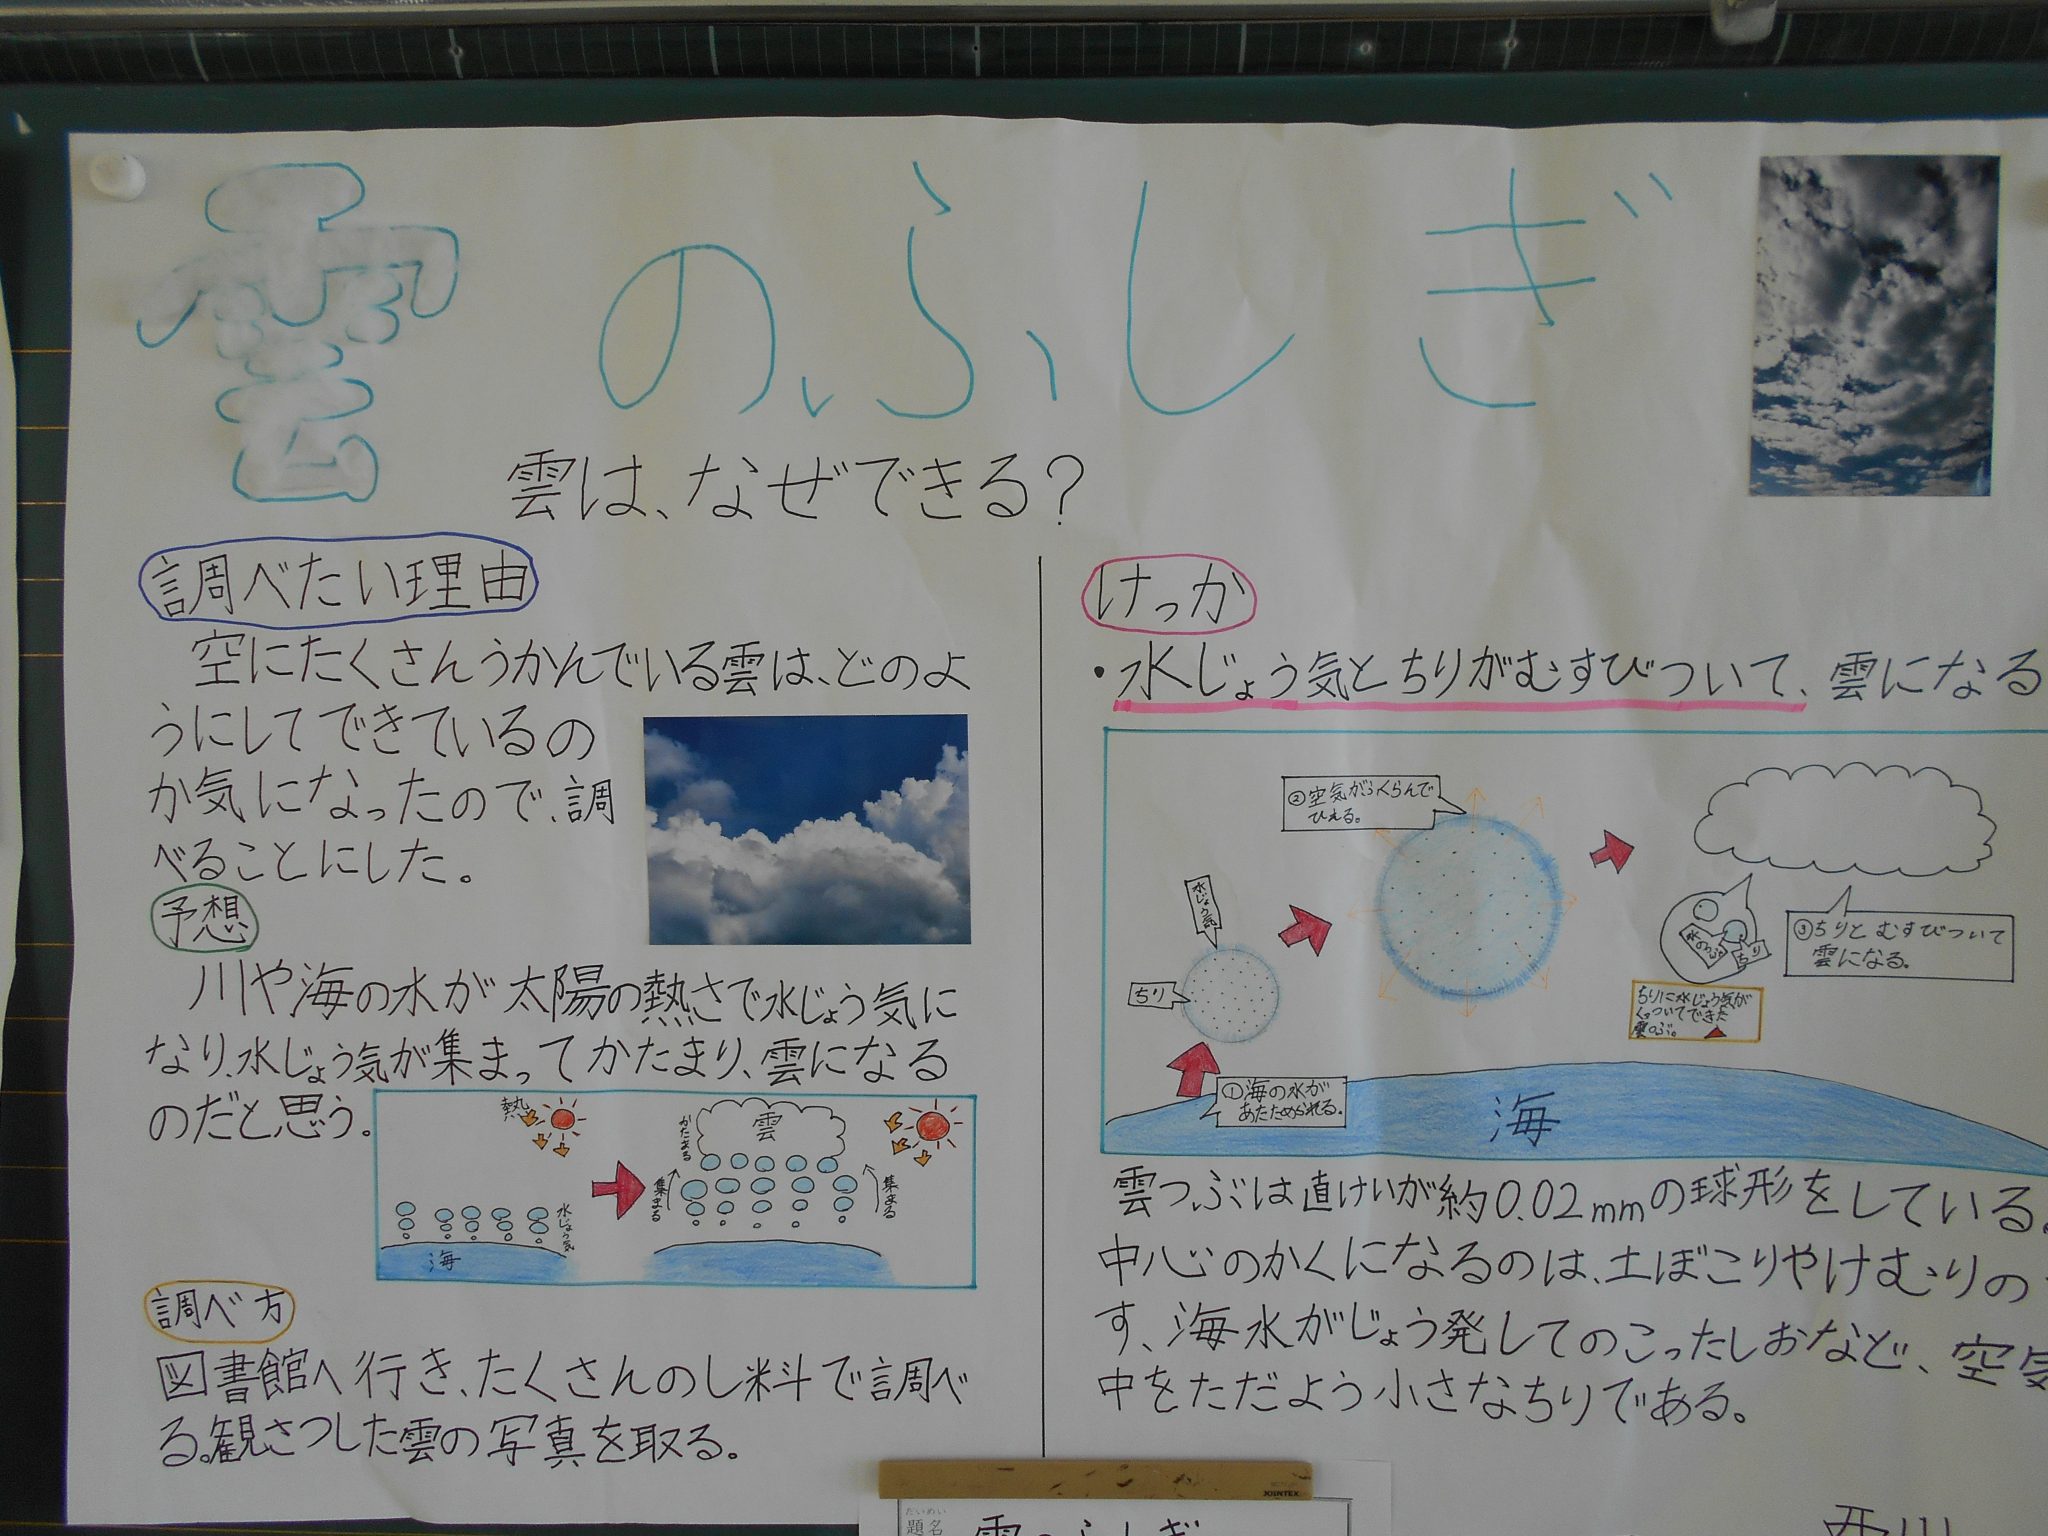 雲のふしぎ
雲は、なぜできる?
調べたい理由
空にたくさんうかんでいる雲は、どのよ
うにしてできているの
か気になったので、調
べることにした。
予想
川や海の水が太陽の熱さで水じょう気に
なり、水じょう気が集まってかたまり、雲になる
のだと思う。
熱
水じょう気
海
雲
かたまる
集まる
集まる
調べ方
図書館へ行き、たくさんのし料で調べ
る。観さつした雲の写真を取る。
けっか
・水じょう気とちりがむすびついて、雲になる
②空気がふくらんで
ひえる。
水じょう気
ちり
①海の水が
あたためられる。
海
水のつぶ
ちり
③ちりとむすびついて
雲になる。
ちりに水じょう気が
くっついてできた
雲のつぶ。
雲つぶは直けいが約0.02mmの球形をしている。
中心のかくになるのは、土ぼこりやけむりの
す、海水がじょう発してのこったしおなど、空気
中をただよう小さなちりである。
西川
JOINTEX
だいめい
題名
雲のふしぎ